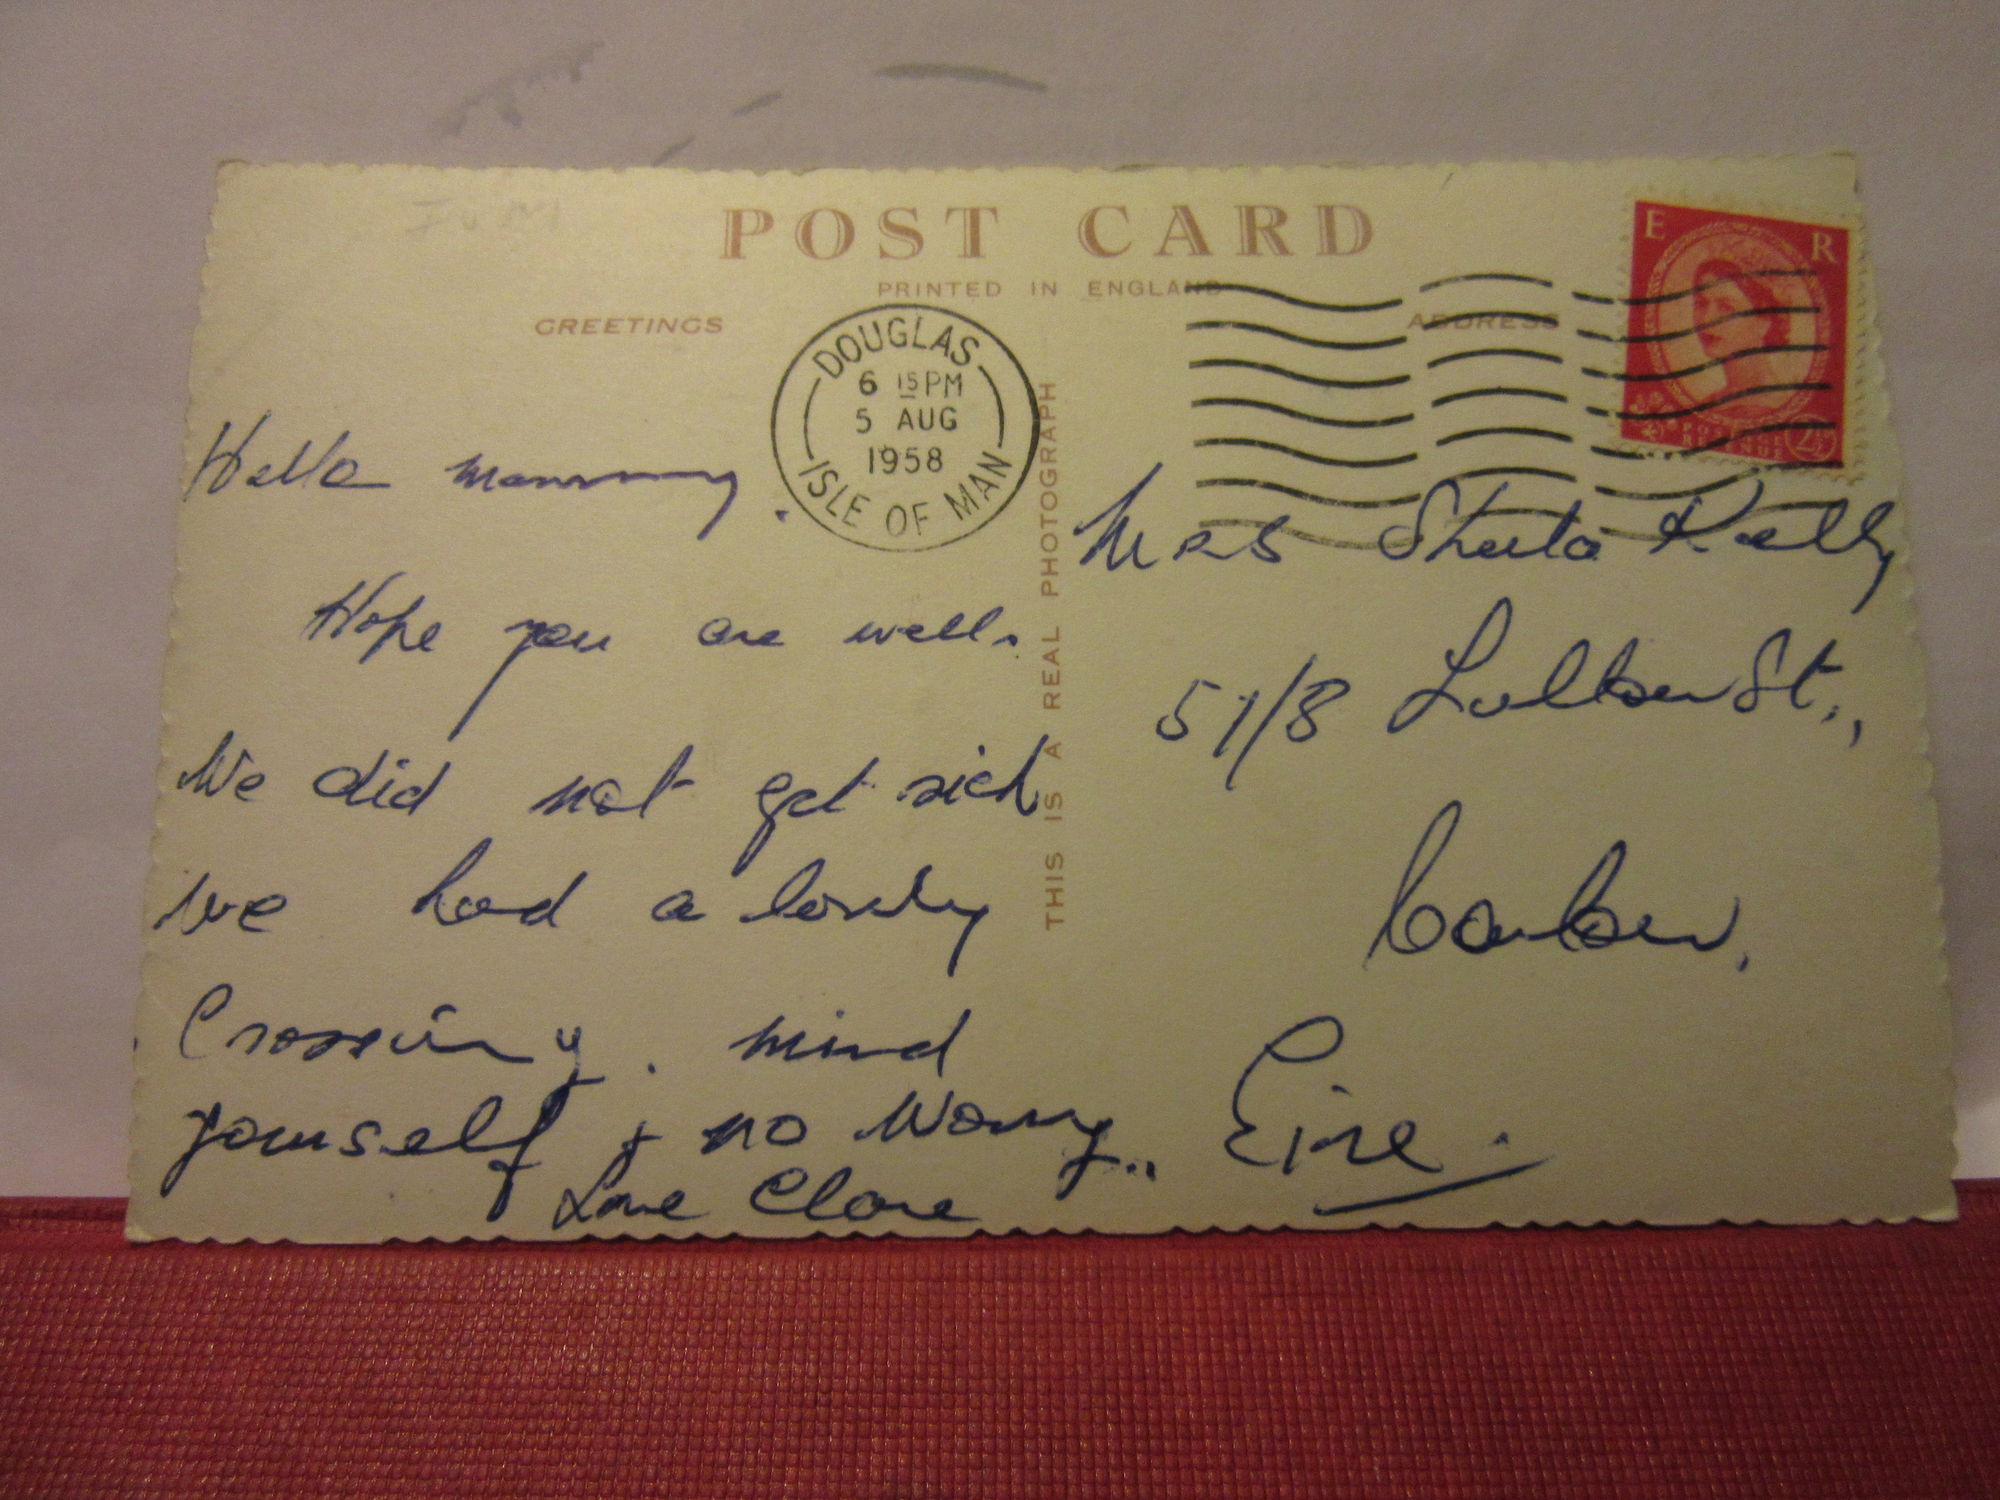 POST CARD
PRINTED IN ENGLAND
GREETINGS
ADDRESS
DOUGLAS
6 15 PM
5 AUG
1958
ISLE OF MAN
E R
POSTAGE
REVENUE
2½
THIS IS A REAL PHOTOGRAPH
Hello mammy.
Hope you are well.
We did not get sick
we had a lovely
Crossing. mind
yourself + no worry..
Love Clare
Mrs Sheila Kelly
57/8 Tullow St.,
Carlow,
Eire.